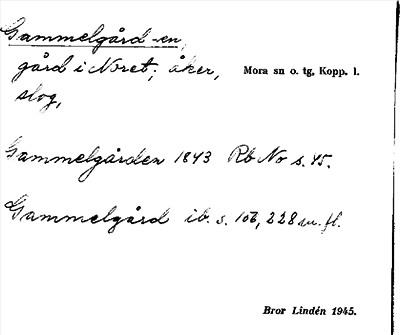 Gammelgård -en,
gård i Noret; åker, Mora sn o. tg, Kopp. l.
slog,
Gammelgården 1843 Rb No s. 45.
Gammelgård ib. s. 106, 228 m. fl.
Bror Lindén 1945.